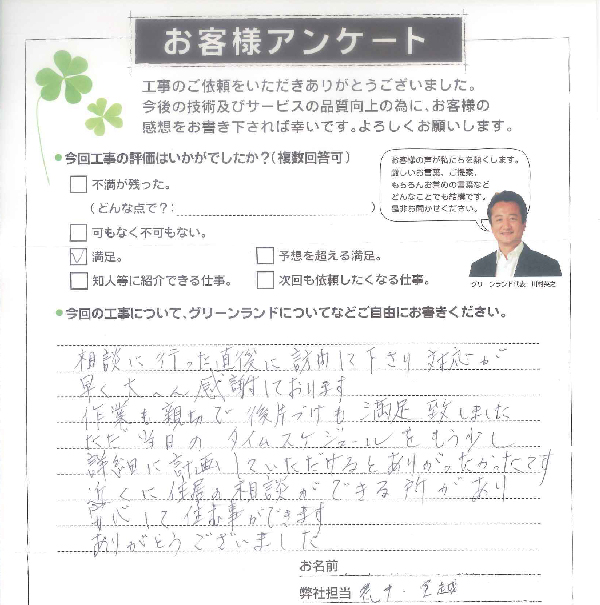 お客様アンケート
工事のご依頼をいただきありがとうございました。
今後の技術及びサービスの品質向上の為に、お客様の
感想をお書き下されば幸いです。よろしくお願いします。
●今回工事の評価はいかがでしたか?(複数回答可)
お客様の声が私たちを熱くします。
厳しいお言葉、ご提案、
もちろんお褒めの言葉など
どんなことでも結構です。
是非お聞かせください。
□ 不満が残った。
(どんな点で?: )
□ 可もなく不可もない。
☑ 満足。
□ 予想を超える満足。
□ 知人等に紹介できる仕事。
□ 次回も依頼したくなる仕事。
グリーンランド代表 川村
●今回の工事について、グリーンランドについてなどご自由にお書きください。
相談に行った直後に訪問して下さり 対応が
早く大へん感謝しております
作業も親切で 後片づけも 満足 致しました
ただ 当日の タイムスケジュールを もう少し
詳細に計画していただけるとありがたかったです
近くに住居の相談ができる所があり
安心して住む事ができます
ありがとうございました
お名前
弊社担当